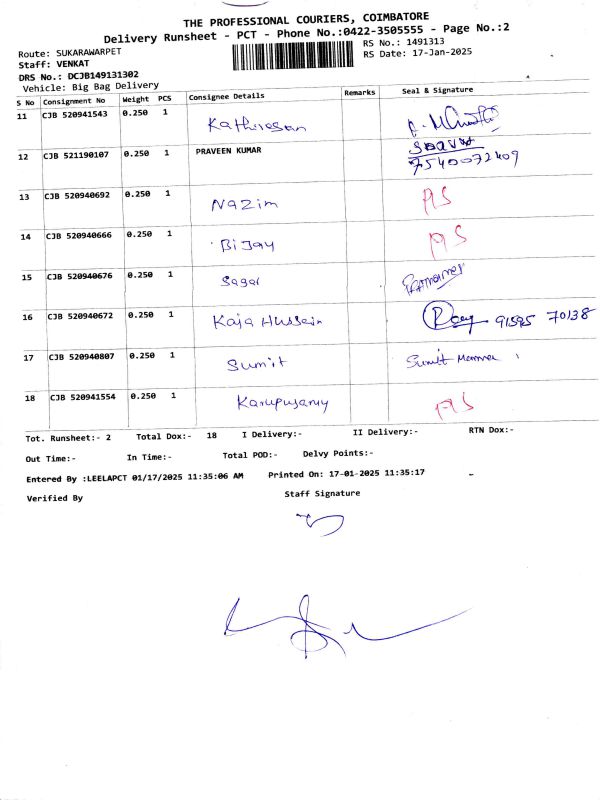 THE PROFESSIONAL COURIERS, COIMBATORE
Delivery Runsheet - PCT - Phone No.:0422-3505555 - Page No.:2
Route: SUKARAWARPET
RS No.: 1491313
Staff: VENKAT
RS Date: 17-Jan-2025
DRS No.: DCJB149131302
Vehicle: Big Bag Delivery
S No Consignment No Weight PCS Consignee Details Remarks Seal & Signature
11 CJB 520941543 0.250 1 Kathiresan
12 CJB 521190107 0.250 1 PRAVEEN KUMAR 7540072409
13 CJB 520940692 0.250 1 Nazim AS
14 CJB 520940666 0.250 1 Bijay AS
15 CJB 520940676 0.250 1 Sagar
16 CJB 520940672 0.250 1 Kaja Hussain 91595 70138
17 CJB 520940807 0.250 1 Sumit Sumit
18 CJB 520941554 0.250 1 Karupusamy AS
Tot. Runsheet:- 2 Total Dox:- 18 I Delivery:- II Delivery:- RTN Dox:-
Out Time:- In Time:- Total POD:- Delvy Points:-
Entered By :LEELAPCT 01/17/2025 11:35:06 AM Printed On: 17-01-2025 11:35:17
Verified By Staff Signature